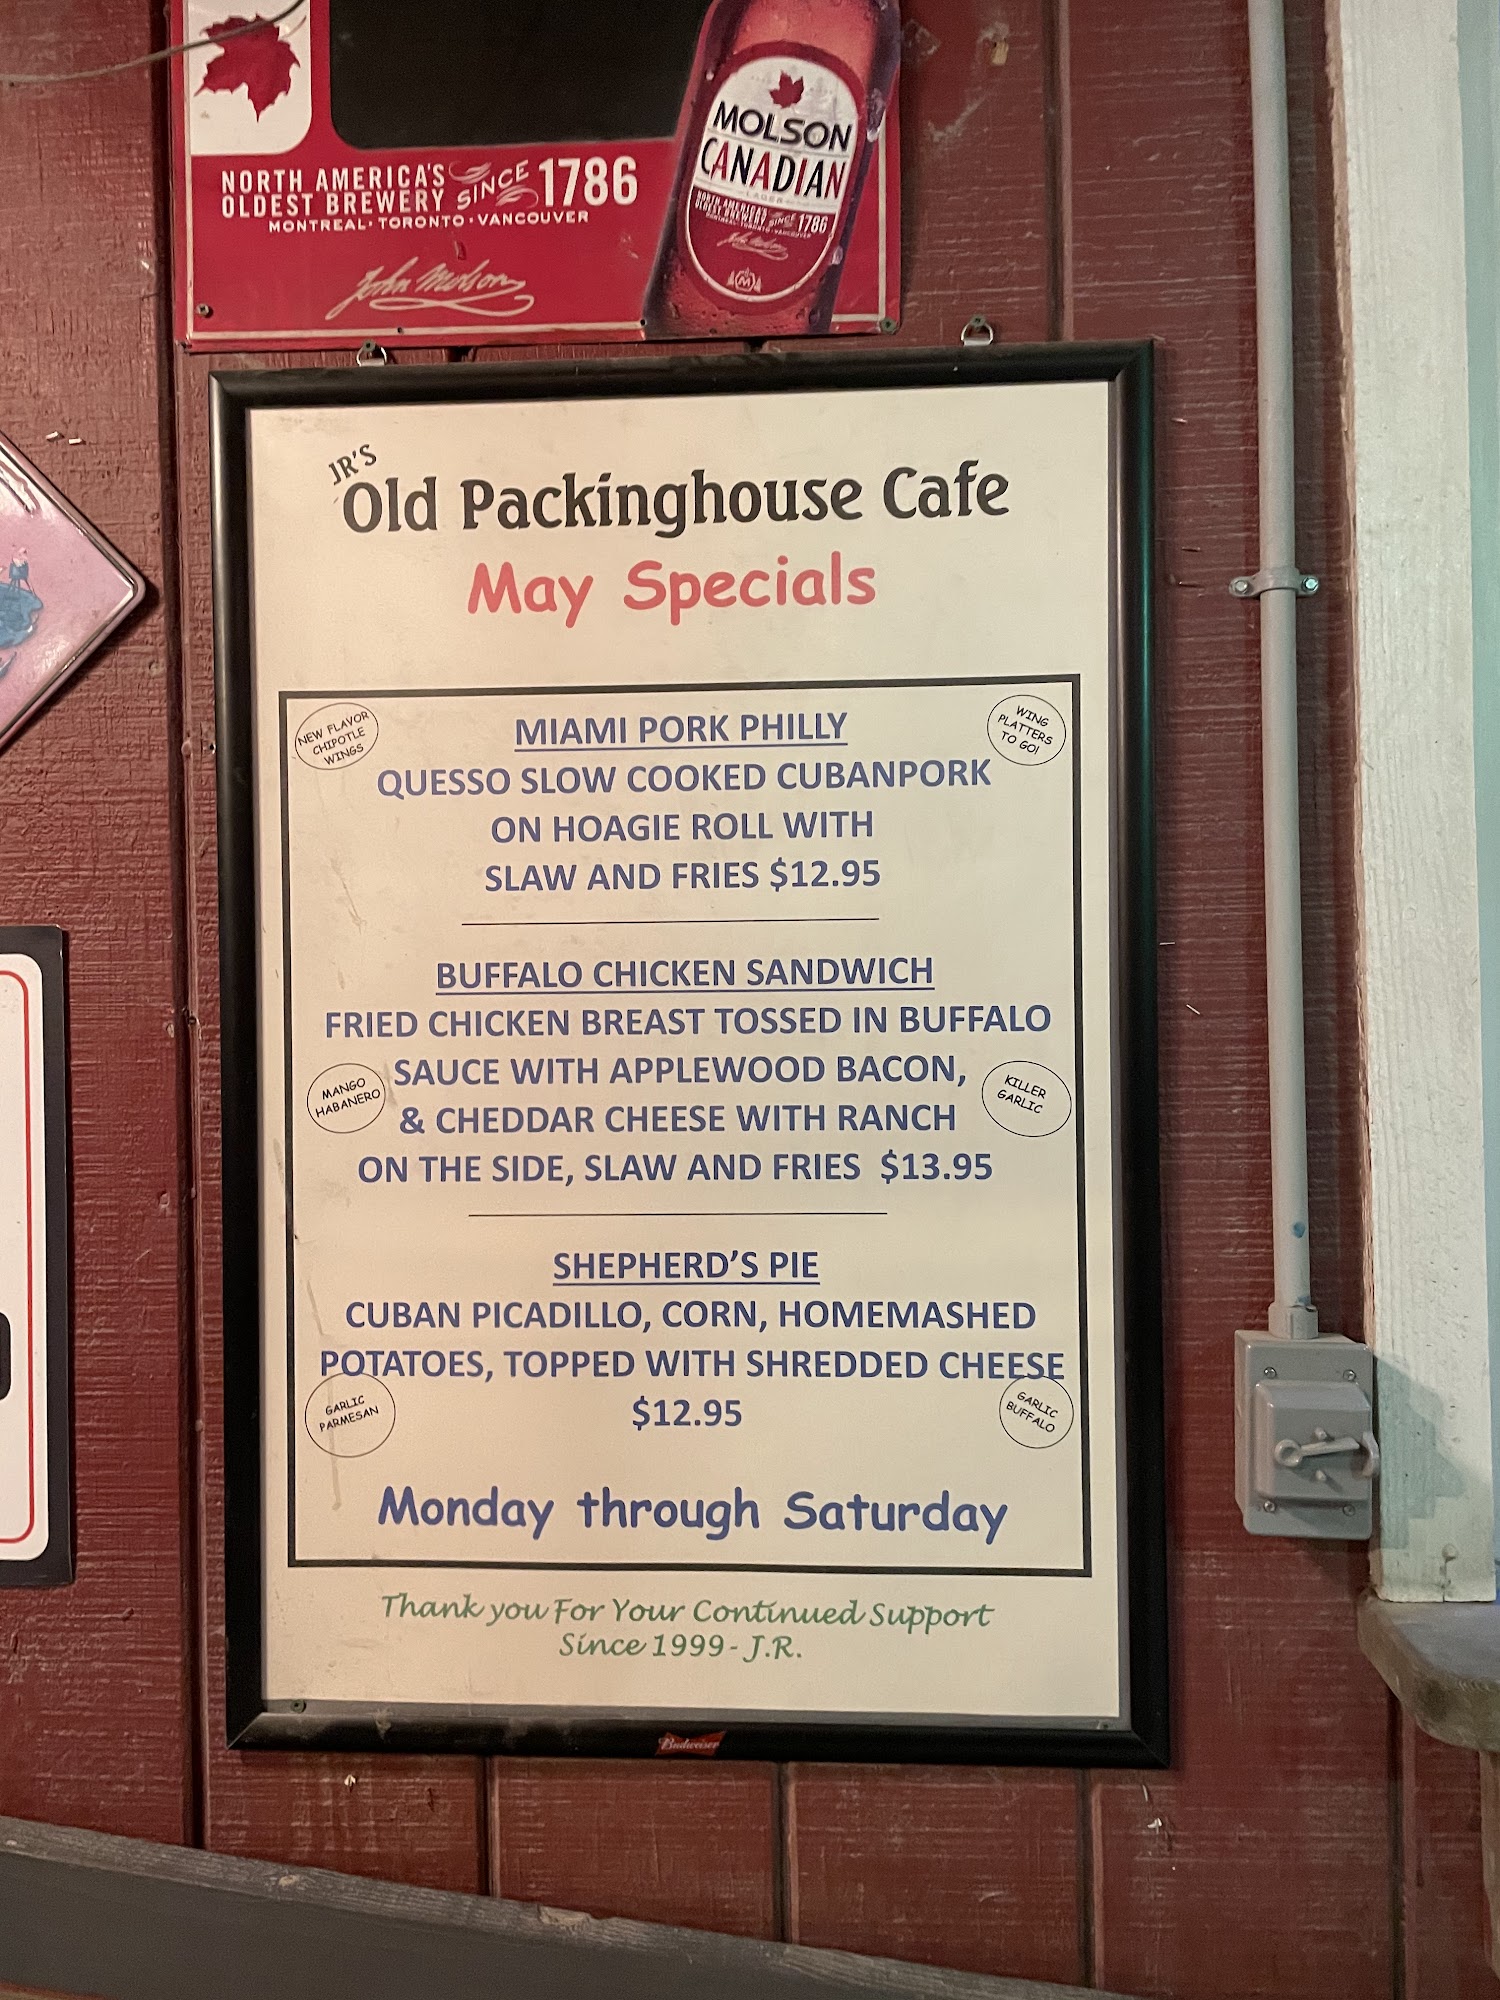 NORTH AMERICA'S
OLDEST BREWERY
SINCE
1786
MONTREAL · TORONTO · VANCOUVER
John Molson
MOLSON
CANADIAN
LAGER
NORTH AMERICA'S
OLDEST BREWERY
SINCE
1786
MONTREAL · TORONTO · VANCOUVER
John Molson
M
JR'S
Old Packinghouse Cafe
May Specials
NEW FLAVOR
CHIPOTLE
WINGS
WING
PLATTERS
TO GO!
MIAMI PORK PHILLY
QUESSO SLOW COOKED CUBANPORK
ON HOAGIE ROLL WITH
SLAW AND FRIES $12.95
BUFFALO CHICKEN SANDWICH
FRIED CHICKEN BREAST TOSSED IN BUFFALO
SAUCE WITH APPLEWOOD BACON,
& CHEDDAR CHEESE WITH RANCH
ON THE SIDE, SLAW AND FRIES $13.95
MANGO
HABANERO
KILLER
GARLIC
SHEPHERD'S PIE
CUBAN PICADILLO, CORN, HOMEMASHED
POTATOES, TOPPED WITH SHREDDED CHEESE
$12.95
GARLIC
PARMESAN
GARLIC
BUFFALO
Monday through Saturday
Thank you For Your Continued Support
Since 1999- J.R.
Budweiser